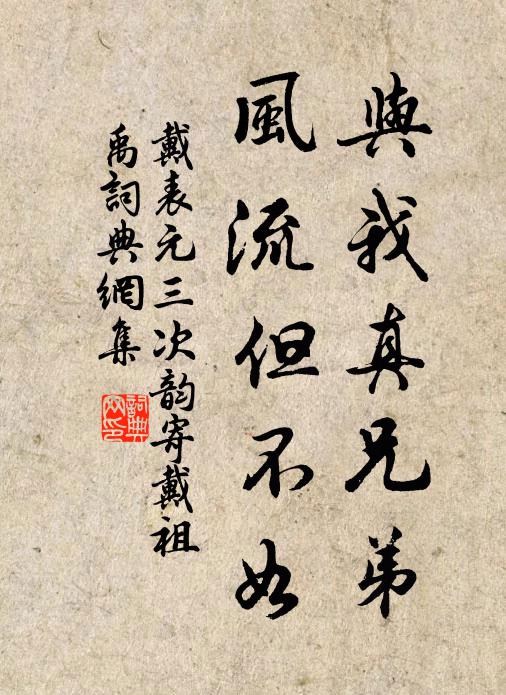 與我真兄弟
風流但不如
戴表元三次韵寄戴祖
禹詞典網集
詞典網印